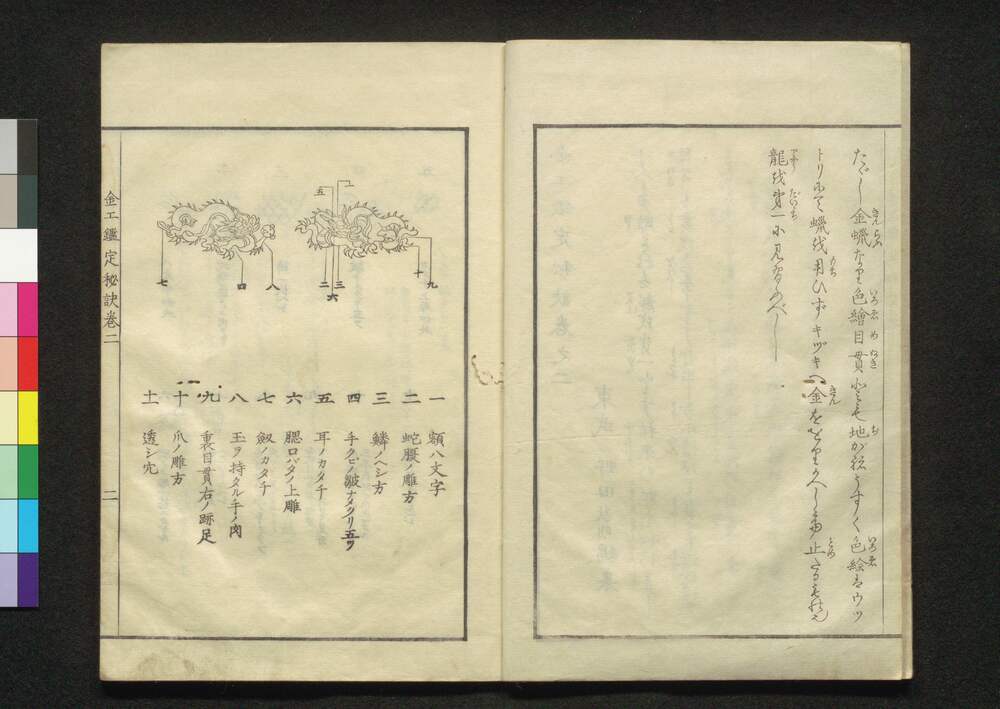 たゞし金蠟なき色繪目貫とも地がねうすく色絵はウツ
トリにて蠟を用ひずキヅキヘ金をかへし止たるもの也
龍を第一に見習ふべし
一
五
二
三
六
十
九
七
四
八
一 額八文字
二 蛇腹ノ雕方
三 鱗ノヘシ方
四 手クビノ皺ナメクリ五ツ
五 耳ノカタチ
六 腮口バタノ上雕
七 劔ノカタチ
八 玉ヲ持タル手ノ肉
九 裏目貫右ノ跡足
十 爪ノ雕方
十一 透シ穴
金工鑑定秘訣巻二
二